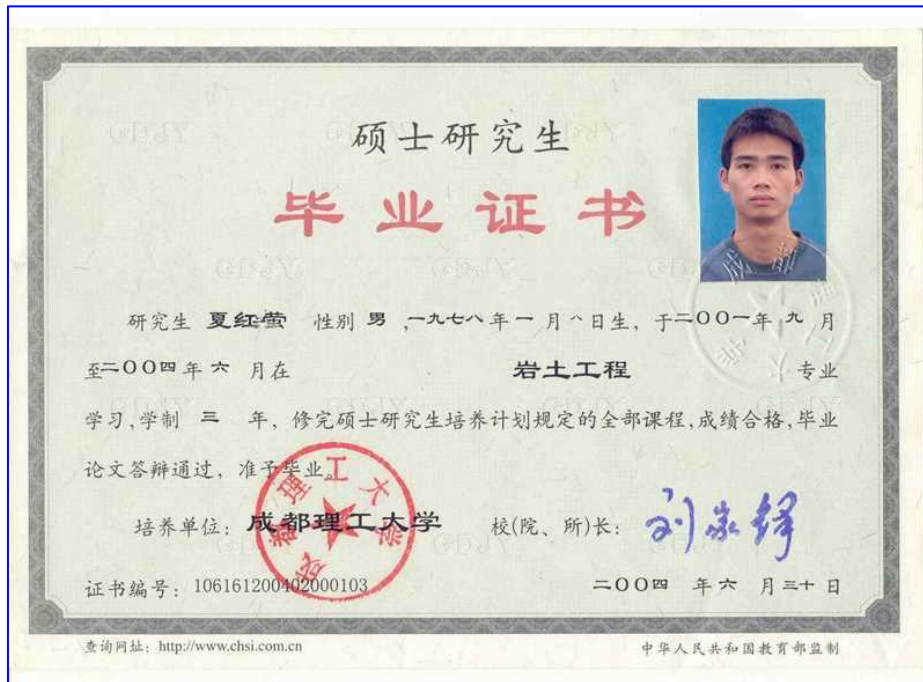 硕士研究生
毕业证书
研究生 夏红萤 性别 男 ,一九七八年 一 月 八 日生, 于二〇〇一年 九 月
至二〇〇四年 六 月在 岩土工程 专业
学习,学制 三 年, 修完硕士研究生培养计划规定的全部课程,成绩合格,毕业
论文答辩通过, 准予毕业。
培养单位: 成都理工大学 校(院、所)长: 刘家铎
成都理工大学
证书编号: 106161200402000103 二〇〇四 年 六 月 三十 日
查询网址: http://www.chsi.com.cn 中华人民共和国教育部监制